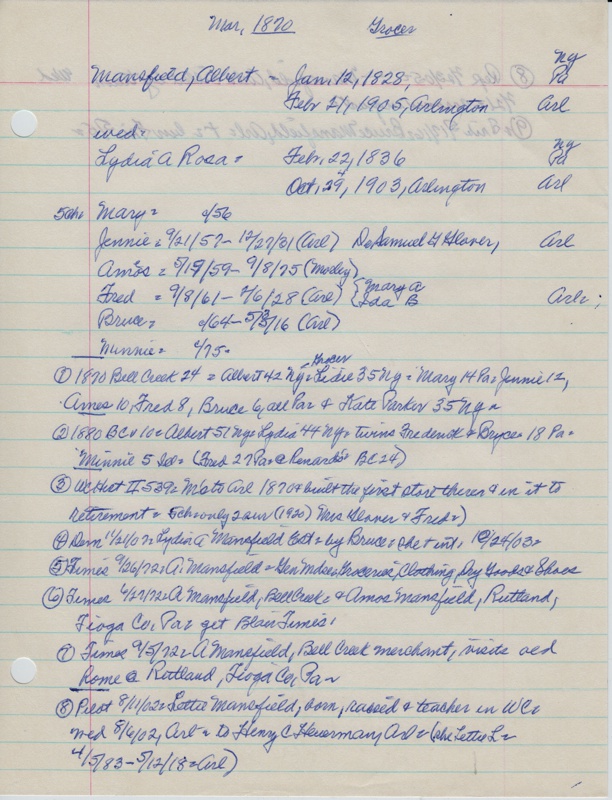 Mar, 1870 Grocer
NY
Mansfield, Albert = Jan, 12, 1828, Pa
Feb 21, 1905, Arlington Arl
wed=
NY
Lydia A Rosa = Feb, 22, 1836 Pa
Oct, 29, 1903, Arlington Arl
5ch= Mary= c/56
Jennie = 9/21/57- 12/27/01 (Arl) D. Samuel G Glover, Arl
Amos = 5/19/59- 9/8/75 (Mosley)
Fred = 9/8/61- 7/6/28 (Arl) { Mary A
Ida B Arl=;
Bruce= c/64- 5/3/16 (Arl)
Minnie= c/75=
① 1870 Bell Creek 24 = Albert 42 NY = Grocer Lidie 35 NY = Mary 14 Pa = Jennie 12,
Amos 10 Fred 8, Bruce 6, all Pa = & Kate Parker 35 NY =
② 1880 BC 10 = Albert 51 NY = Lydia 44 NY = twins Frederick & Bryce = 18 Pa =
Minnie 5 = (Fred 27 Pa = @ BC 24)
③ WC Hist II 539 = M to Arl 1870 & built the first store there & in it to
retirement = 5ch = only 2 sur (1920) Mrs Glover & Fred =)
④ Dem 11/21/07 = Lydia A Mansfield Est = by Bruce = she + int, 10/24/03 =
⑤ Times 9/26/72 = A. Mansfield = Gen Mdse = Groceries, Clothing, Dry Goods & Shoes
⑥ Times 4/27/72 = A Mansfield, Bell Creek = & Amos Mansfield, Rutland,
Tioga Co, Pa = get Blair Times!
⑦ Times 9/5/72 = A Mansfield, Bell Creek merchant, visits old
home @ Rutland, Tioga Co, Pa =
⑧ Pilot 8/11/02 = Lettie Mansfield, born, raised & teacher in WC =
wed 8/6/02, Arl = to Henry C Heuerman, Arl = (she Lettie L =
4/5/83- 5/12/18 = Arl)